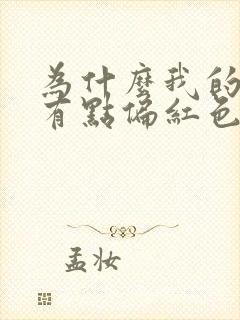 為什麼我的
有點偏紅色
孟妝